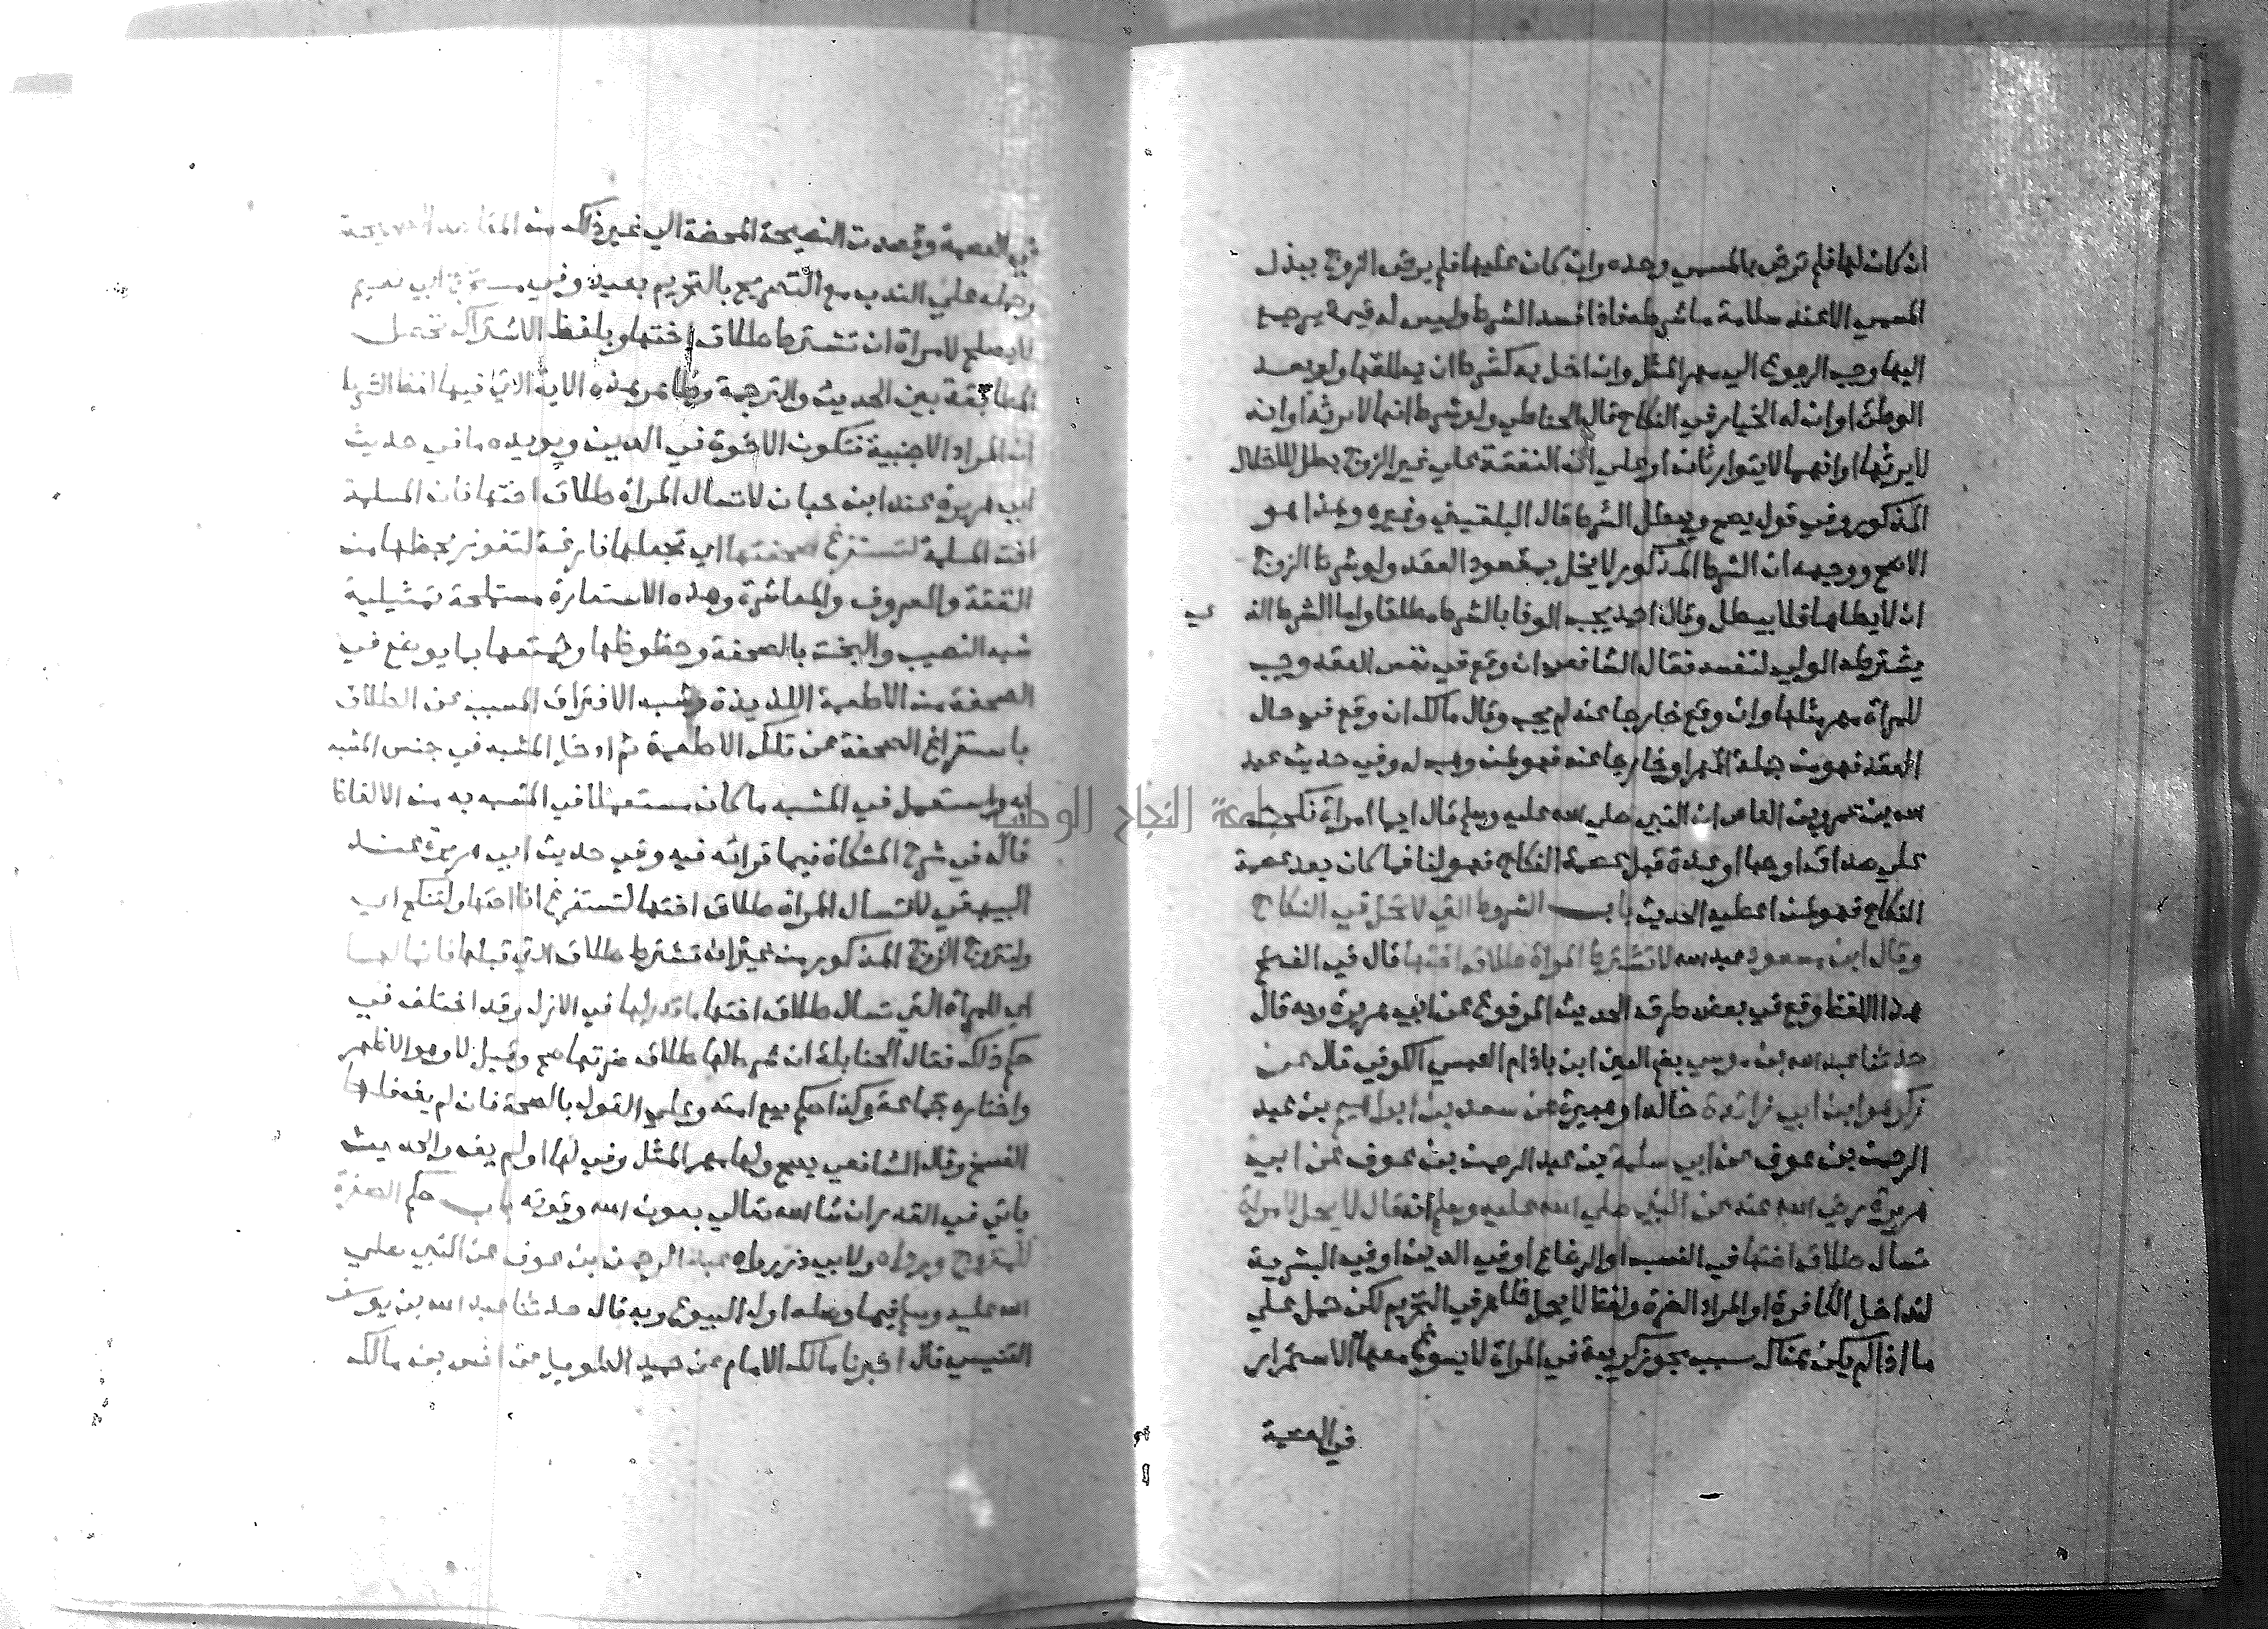 ان كان لها فلم ترض بالمسمي وحده وان كان عليها فلم يرض الزوج ببذل
المسمي الا عند سلامة ما شرطه فاذا فسد الشرط وليس له قيمة يرجع
اليها وجب الرجوع الي مهر المثل وان اخل به كشرط ان يطلقها ولو بعد
الوطئ او ان له الخيار في النكاح قال الحناطي ولو شرط انها لا ترثه او انه
لا يرثها او انهما لا يتوارثان او علي ان النفقة علي غير الزوج بطل للاخلال
المذكور وفي قول يصح ويبطل الشرط قال البلقيني وغيره وهذا هو
الاصح ووجهه ان الشرط المذكور لا يخل بمقصود العقد ولو شرط الزوج
ان لا يطاها فلا يبطل وقال احمد يجب الوفا بالشرط مطلقا واما الشرط الذ ي
يشترطه الولي لنفسه فقال الشافعي ان وقع في نفس العقد وجب
للمراة مهر مثلها وان وقع خارجا عنه لم يجب وقال مالك ان وقع في حال
العقد فهو من جملة المهر او خارجا عنه فهو لمن وهب له وفي حديث عبد
الله بن عمرو بن العاص ان النبي صلي الله عليه وسلم قال ايما امراة نكحت
علي صداق او حبا او عدة قبل عصمة النكاح فهو لها فما كان بعد عصمة
النكاح فهو لمن اعطيه الحديث باب الشروط التي لا تحل في النكاح
وقال ابن مسعود عبد الله لا تشترط المراة طلاق اختها قال في الفتح
هذا اللفظ وقع في بعض طرق الحديث المرفوع عن ابي هريرة وبه قال
حدثنا عبد الله بن موسي بضم العين ابن باذام العبسي الكوفي قال عن
زكريا هو ابن ابي زائدة خالد او هبيرة عن سعد بن ابراهيم بن عبد
الرحمن بن عوف عن ابي سلمة بن عبد الرحمن بن عوف عن ابي
هريرة رضي الله عنه عن النبي صلي الله عليه وسلم انه قال لا يحل لامراة
تسال طلاق اختها في النسب او الرضاع او في الدين او في البشرية
لتداخل الكافرة او المراد الضرة ولفظ لا يحل ظاهر في التحريم لكن حمل علي
ما اذا لم يكن هناك سبب يجوز كريبة في المراة لا يسوغ معها الاستمرار
في العصمة
في العصمة وقصدت النصيحة المحضة الي غير ذلك من المقاصد الصحيحة
وحمله علي الندب مع التصريح بالتحريم بعيد وفي مستخرج ابي نعيم
لا يصلح لامراة ان تشترط طلاق اختها وبلفظ الاشتراك تحصل
المطابقة بين الحديث والترجمة وظاهر هذه الاية الاتي فيها لفظ الشرط
ان المراد الاجنبية فتكون الاخوة في الدين ويويده ما في حديث
ابي هريرة عند ابن حبان لا تسال المراة طلاق اختها فان المسلمة
اخت المسلمة لتستفرغ صحفتها اي تجعلها فارغة لتفوز بحظها من
النفقة والمعروف والمعاشرة وهذه الاستعارة مستملحة تمثيلية
شبه النصيب والبخت بالصحفة وحظوظها وتمتعها بما يوضع في
الصحفة من الاطعمة اللذيذة وشبه الافتراق المسبب عن الطلاق
باستفراغ الصحفة عن تلك الاطعمة ثم ادخل المشبه في جنس المشبه
به واستعمل في المشبه ما كان مستعملا في المشبه به من الالفاظ
قاله في شرح المشكاة فيما قراته فيه وفي حديث ابي هريرة عند
البيهقي لا تسال المراة طلاق اختها لتستفرغ انا اختها ولتنكح اي
ولتتزوج الزوج المذكور من غير ان تشترط طلاق التي قبلها فانما لها
اي للمراة التي تسال طلاق اختها ما قدر لها في الازل وقد اختلف في
حكم ذلك فقال الحنابلة ان شرط لها طلاق ضرتها صح وقيل لا وهو الاظهر
واختاره جماعة وكذا حكم بيع امته وعلي القول بالصحة فان لم يف فلها
الفسخ وقال الشافعي يصح ولها مهر المثل وفي لها او لم يف والحديث
ياتي في القدر ان شا الله تعالي بعون الله وقوته باب حكم الصفرة
للمتزوج ورواه ولابي ذر رواه عبد الرحمن بن عوف عن النبي صلي
الله عليه وسلم فيما وصله اول البيوع وبه قال حدثنا عبد الله بن يوسف
التنيسي قال اخبرنا مالك الامام عن حميد الطويل عن انس بن مالك
جامعة النجاح الوطنية